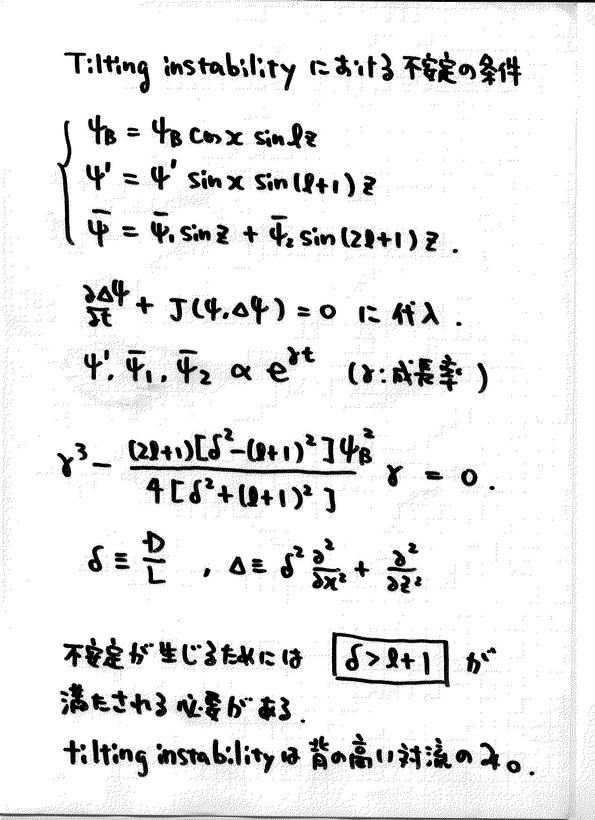 Tilting instability における不安定の条件
ψ_B = ψ_B cos x sin lz
ψ' = ψ' sin x sin(l+1)z
ψ̄ = ψ̄₁ sin z + ψ̄₂ sin(2l+1)z.
∂Δψ/∂t + J(ψ,Δψ) = 0 に代入.
ψ', ψ̄₁, ψ̄₂ ∝ e^{γt} (γ:成長率)
γ³ − (2l+1)[δ²−(l+1)²]ψ_B² / 4[δ²+(l+1)²] γ = 0.
δ ≡ D/L , Δ ≡ δ² ∂²/∂x² + ∂²/∂z²
不安定が生じるためには δ > l+1 が
満たされる必要がある.
tilting instabilityは背の高い対流のみ。